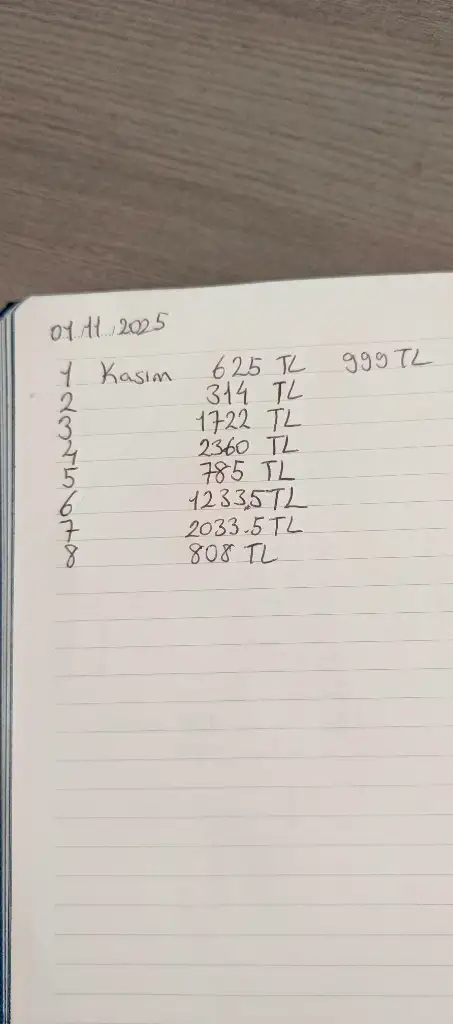 01.11.2025
1 Kasım 625 TL 999 TL
2 314 TL
3 1722 TL
4 2360 TL
5 785 TL
6 1233.5 TL
7 2033.5 TL
8 808 TL